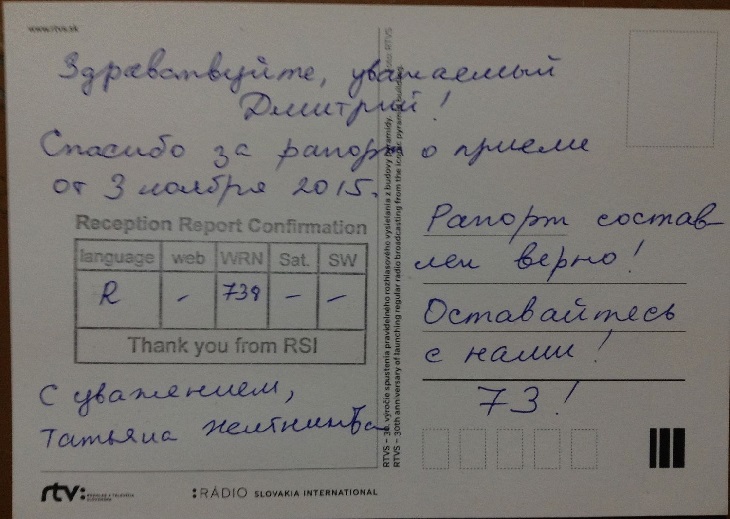 www.rtvs.sk
Здравствуйте, уважаемый
Дмитрий!
Спасибо за рапорт о приеме
от 3 ноября 2015.
Reception Report Confirmation
language web WRN Sat. SW
R - 738 - -
Thank you from RSI
С уважением,
Татьяна
rtv:
:RÁDIO SLOVAKIA INTERNATIONAL
RTVS – 30. výročie spustenia pravidelného rozhlasového vysielania z budovy pyramídy.
RTVS – 30th anniversary of launching regular radio broadcasting from the iconic pyramid building.
Рапорт состав
лен верно!
Оставайтесь
с нами!
73!